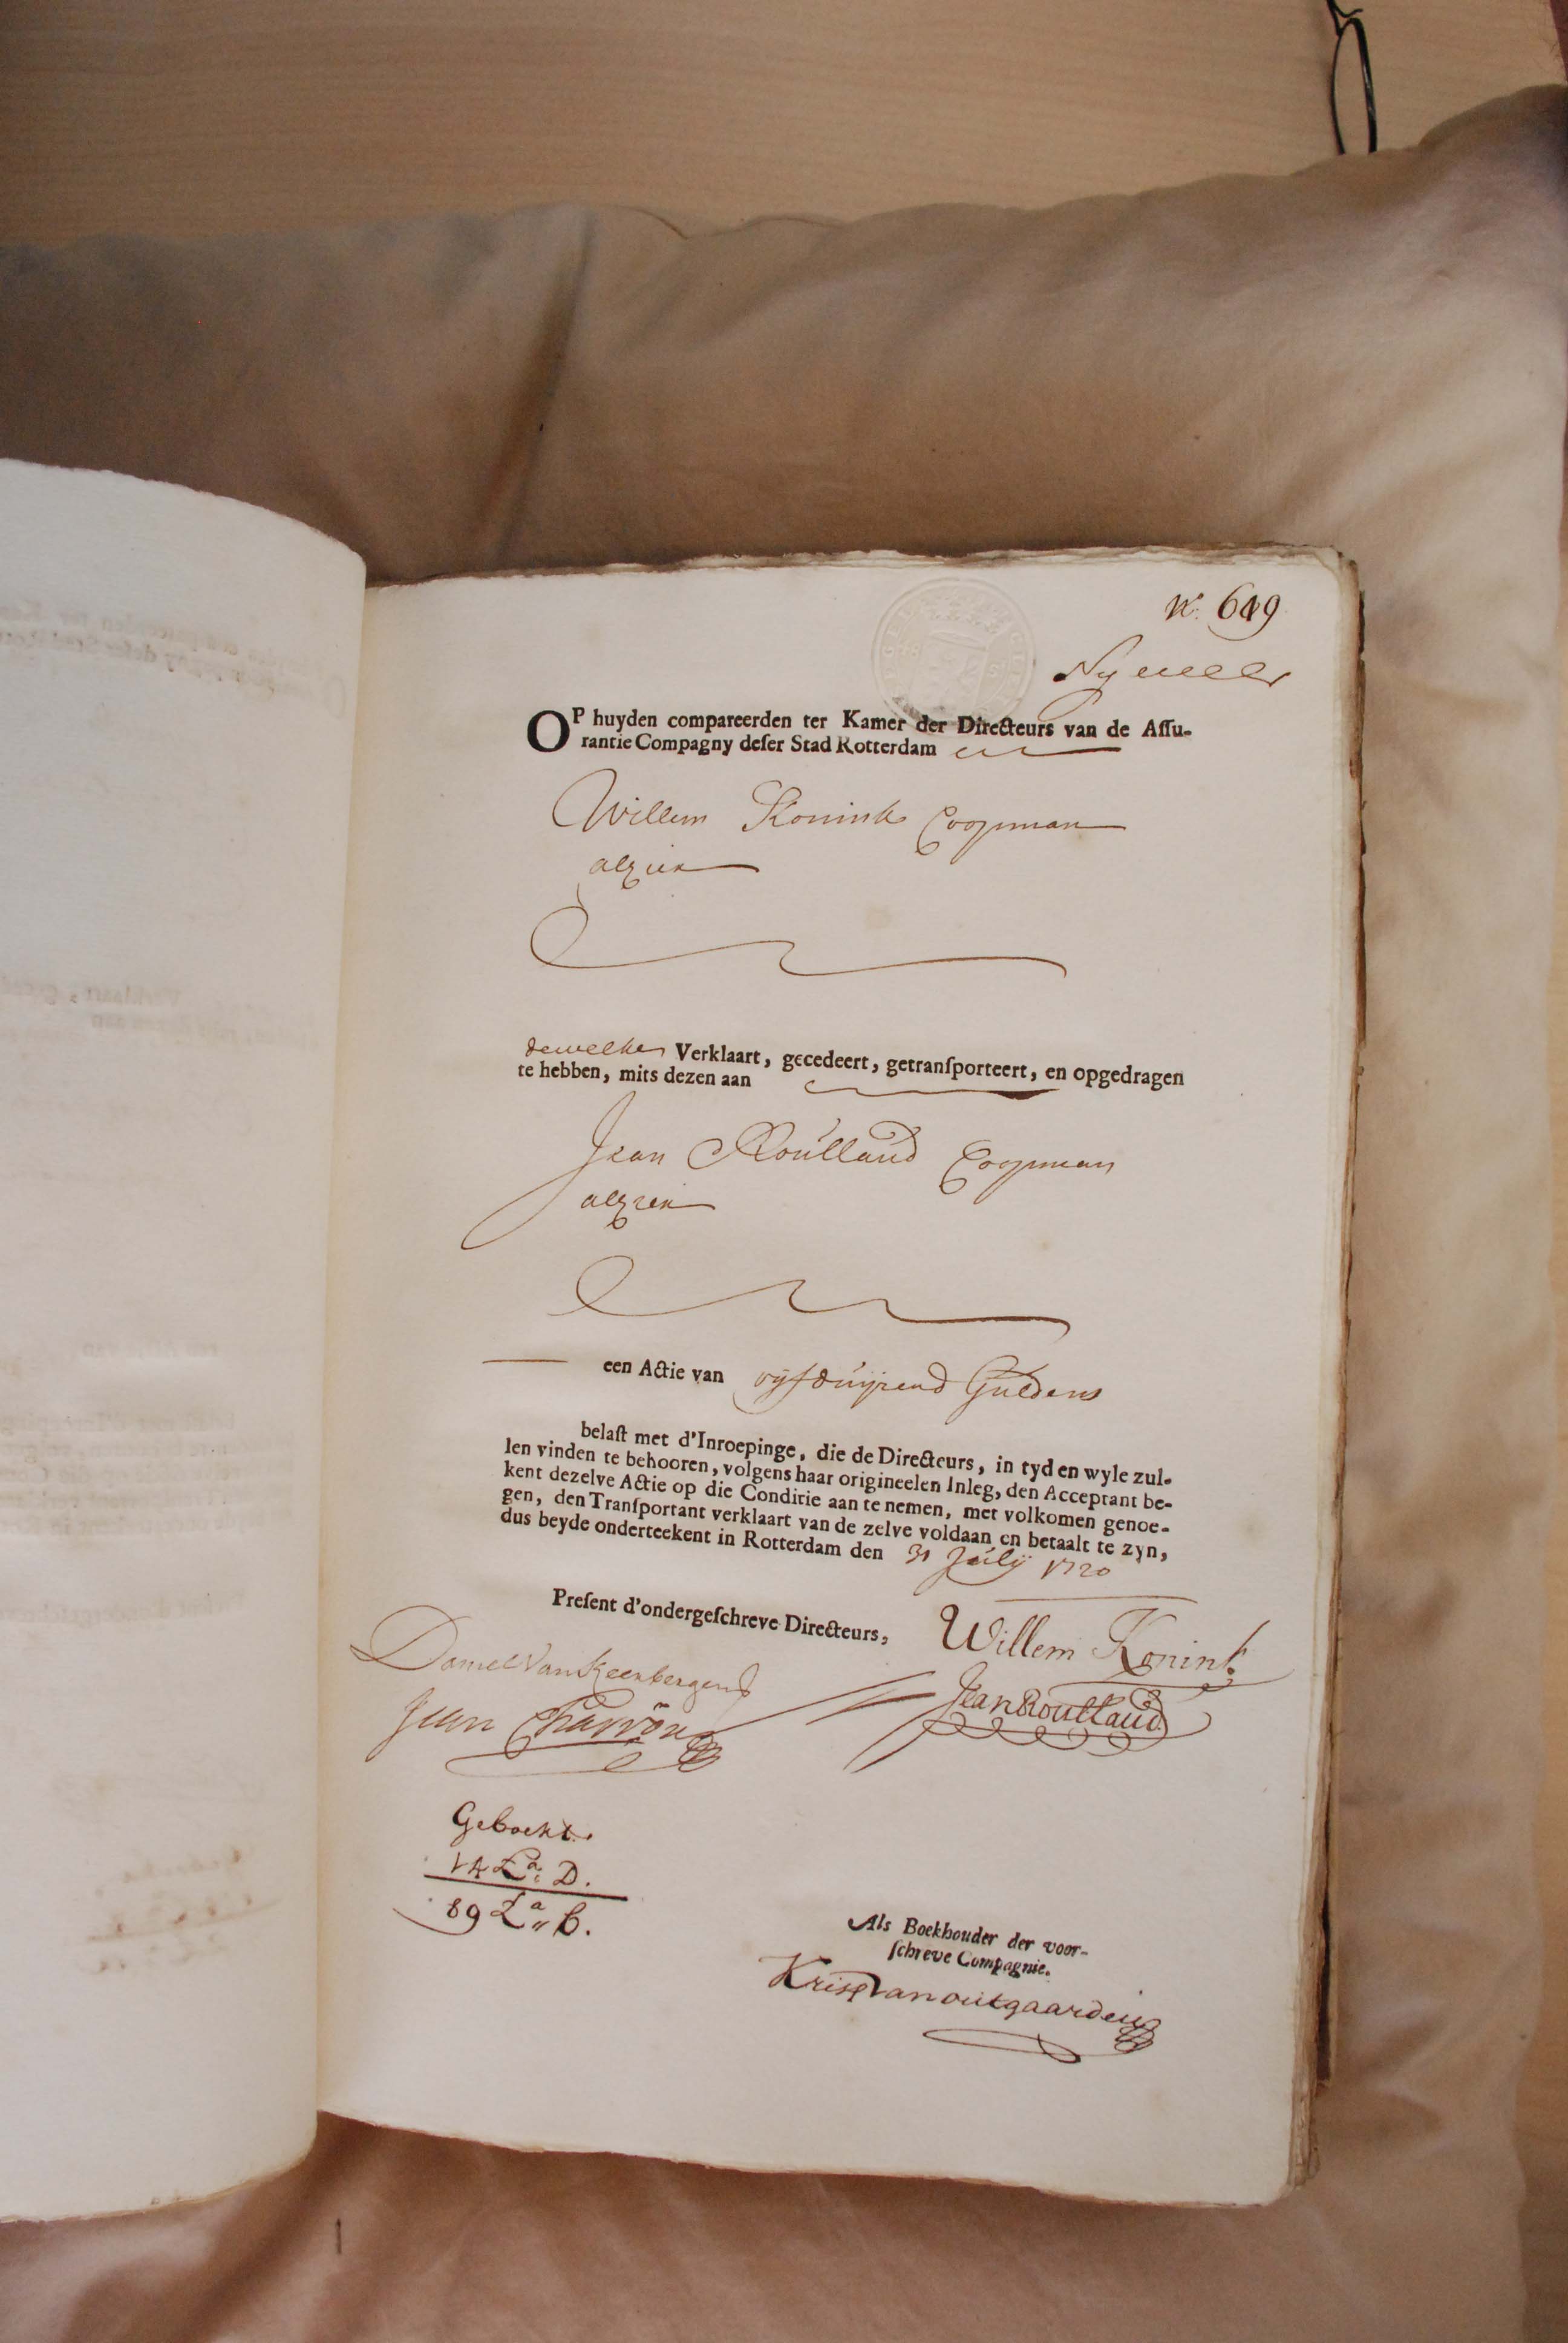 N.º 619
OP huyden compareerden ter Kamer der Directeurs van de Aſſu-
rantie Compagny deſer Stad Rotterdam
Willem Konink Coopman
alhier
dewelke Verklaart, gecedeert, getranſporteert, en opgedragen
te hebben, mits dezen aan
Jean Roulland Coopman
alhier
een Actie van vyfduysend Guldens
belaſt met d'Inroepinge, die de Directeurs, in tyd en wyle zul-
len vinden te behooren, volgens haar origineelen Inleg, den Acceptant be-
kent dezelve Actie op die Conditie aan te nemen, met volkomen genoe-
gen, den Tranſportant verklaart van de zelve voldaan en betaalt te zyn,
dus beyde onderteekent in Rotterdam den 31 July 1720
Preſent d'ondergeſchreve Directeurs,
Willem Konink
Daniel Van Keerbergen
Jean Roulland
Jean Charron
Geboekt.
14 La: D.
89 La B.
Als Boekhouder der voor-
ſchreve Compagnie.
Krisp Van outgaarden